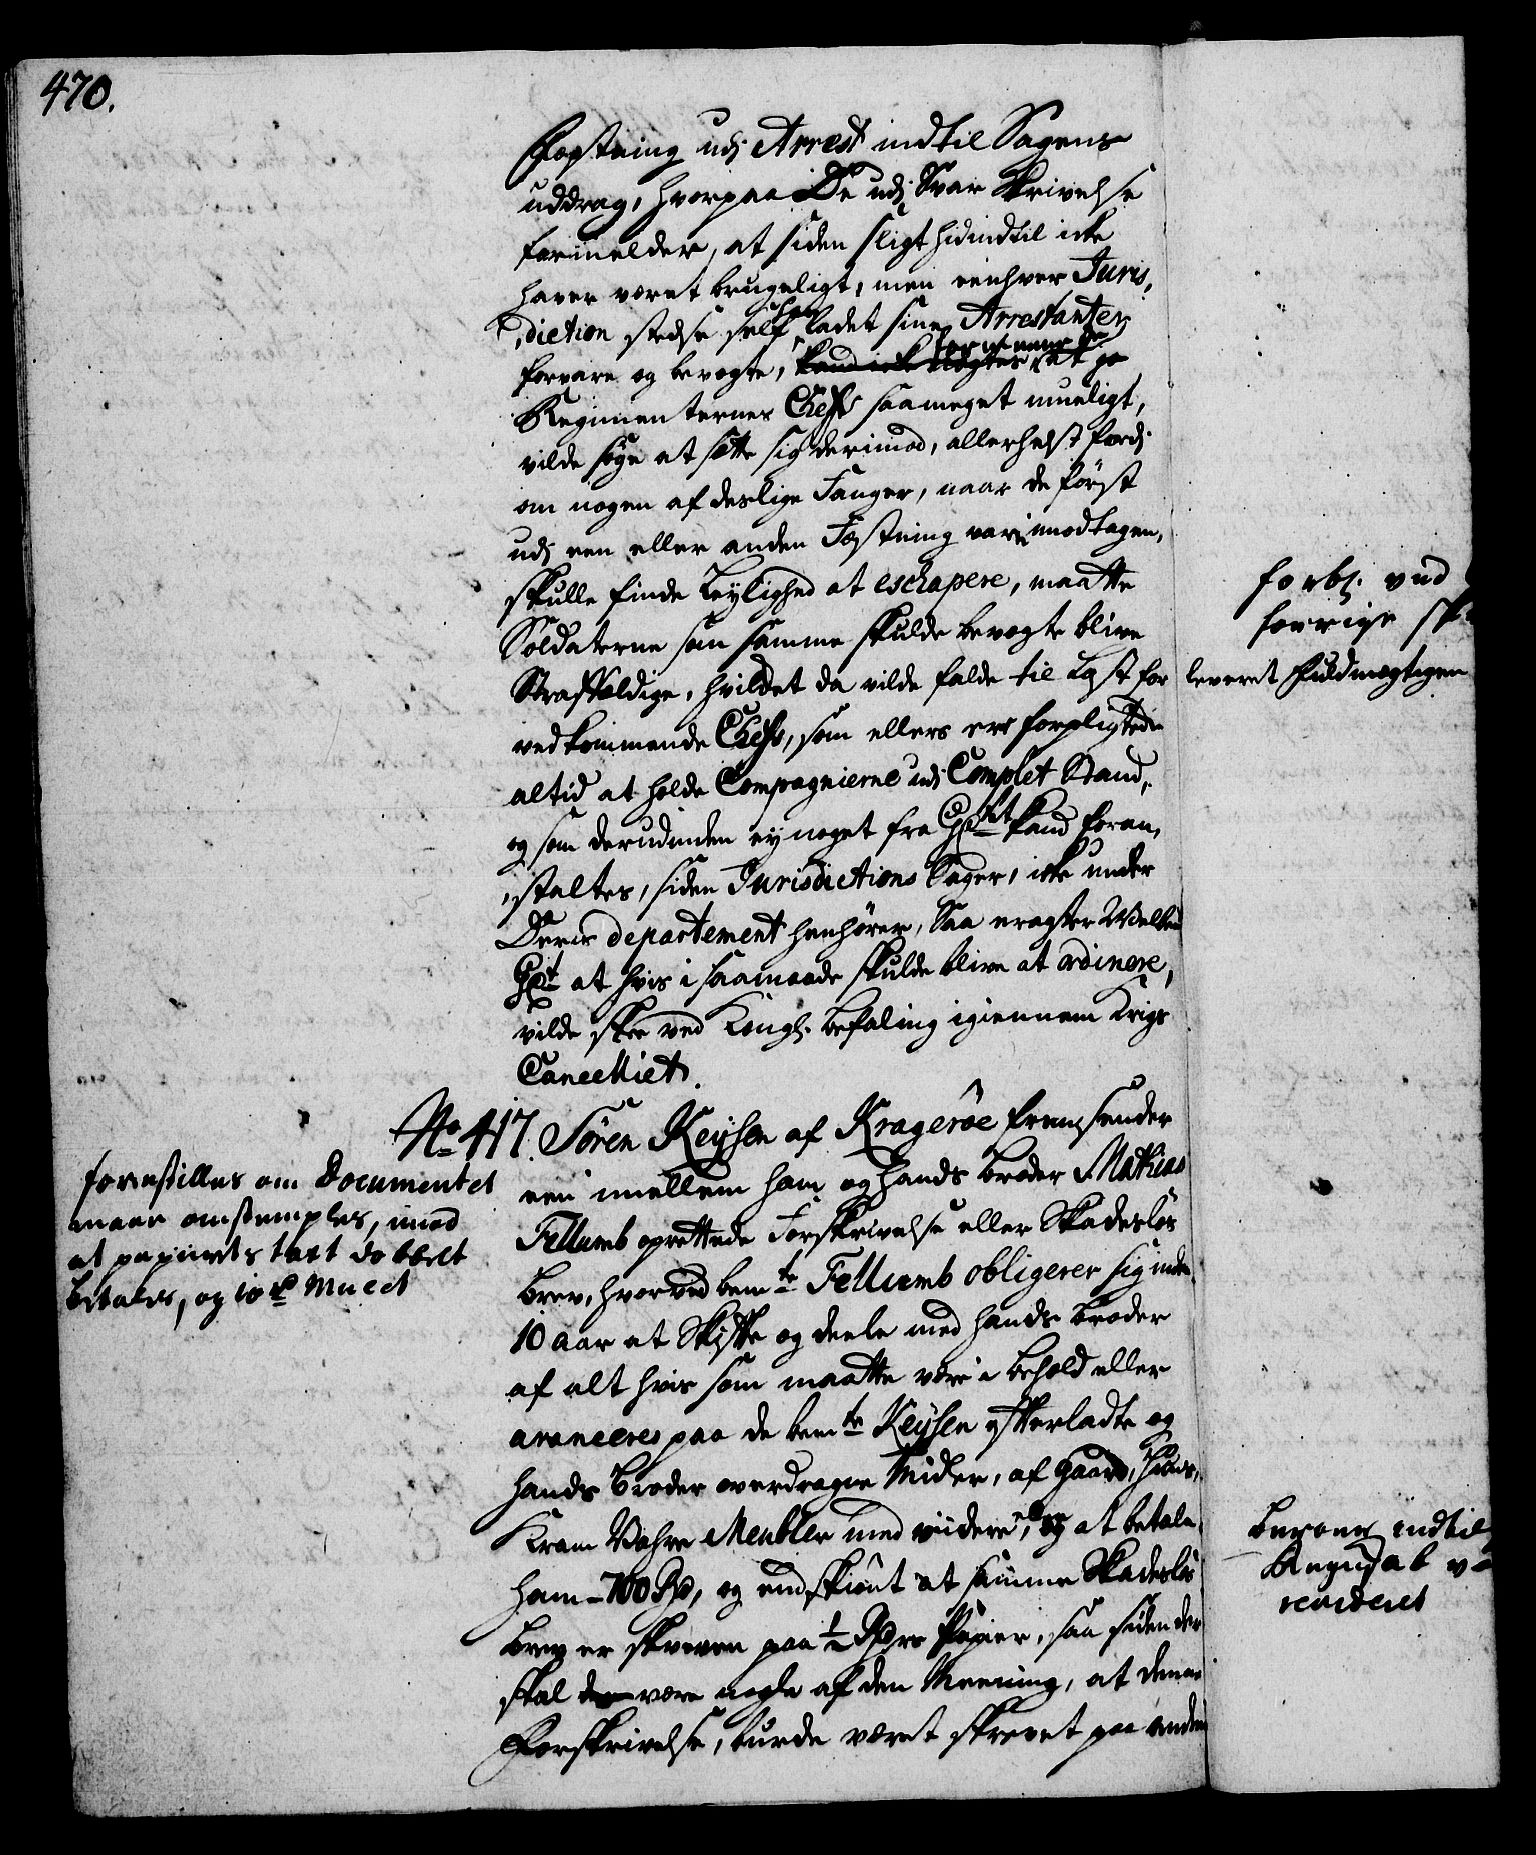 470.
Fæstning udj Arrest indtil Sagens
uddrag, hvorpaa De udj Svar Skrivelse
formelder, at siden sligt hidindtil icke
haver været brugeligt, men eenhver Juris,
,diction stedse self har ladet sine Arrestanter
forvare og bevogte, formeener de at
Regimenternes Cheffs saameget mueligt,
vilde søge at sætte sig derimod, allerhelst fordj
om nogen af deslige Fanger, naar de først
udj een eller anden Fæstning vare imodtagen,
skulle finde Leylighed at eschapere, maatte
Soldaterne som samme skulde bevogte blive
Straffældige, hvilcket da vilde falde til Last for
vedkommende Cheffs, som ellers ere forpligtede
altid at holde Compagnierne udj Complet Stand,
og som derudinden ey noget fra kand foran,
,staltes, siden Jurisdictions Sager, icke under
Deres departement henhører, Saa eragter
at hvis i saamaade skulde blive at ordinere,
vilde skee ved Kongl. befaling igiennem Krigs
Cancelliet.
No 417. Søren Keysen af Kragerøe fremsender
een imellem ham og hands broder Mathias
Fellumb oprettede Forskrivelse eller Skadesløs
brev, hvorved bemte Fellumb obligerer sig inden
10 aar at Skifte og deele med hands broder
af alt hvis som maatte være i behold eller
avanceres paa de bemte Keysen efterladte og
hands broder overdragne Midler, af gaard, Huus,
Kram Vahre Meubler med viidere, og at betale
ham 700 Rd, og endskiønt at samme Skadesløs
brev er skreven paa ½ Rdrs Papier, saa siden der
skal være nogle af den Meening, at denne
Forskrivelse, burde været skrevet paa andet
forestilles om Documentet
maae omstemples, imod
at papiirets taxt dobbelt
betales, og 10 rd Mulct
forbl. ved
forrige
leveret Fuldmægtigen
beroer indtil
Regnsk ab
revideret